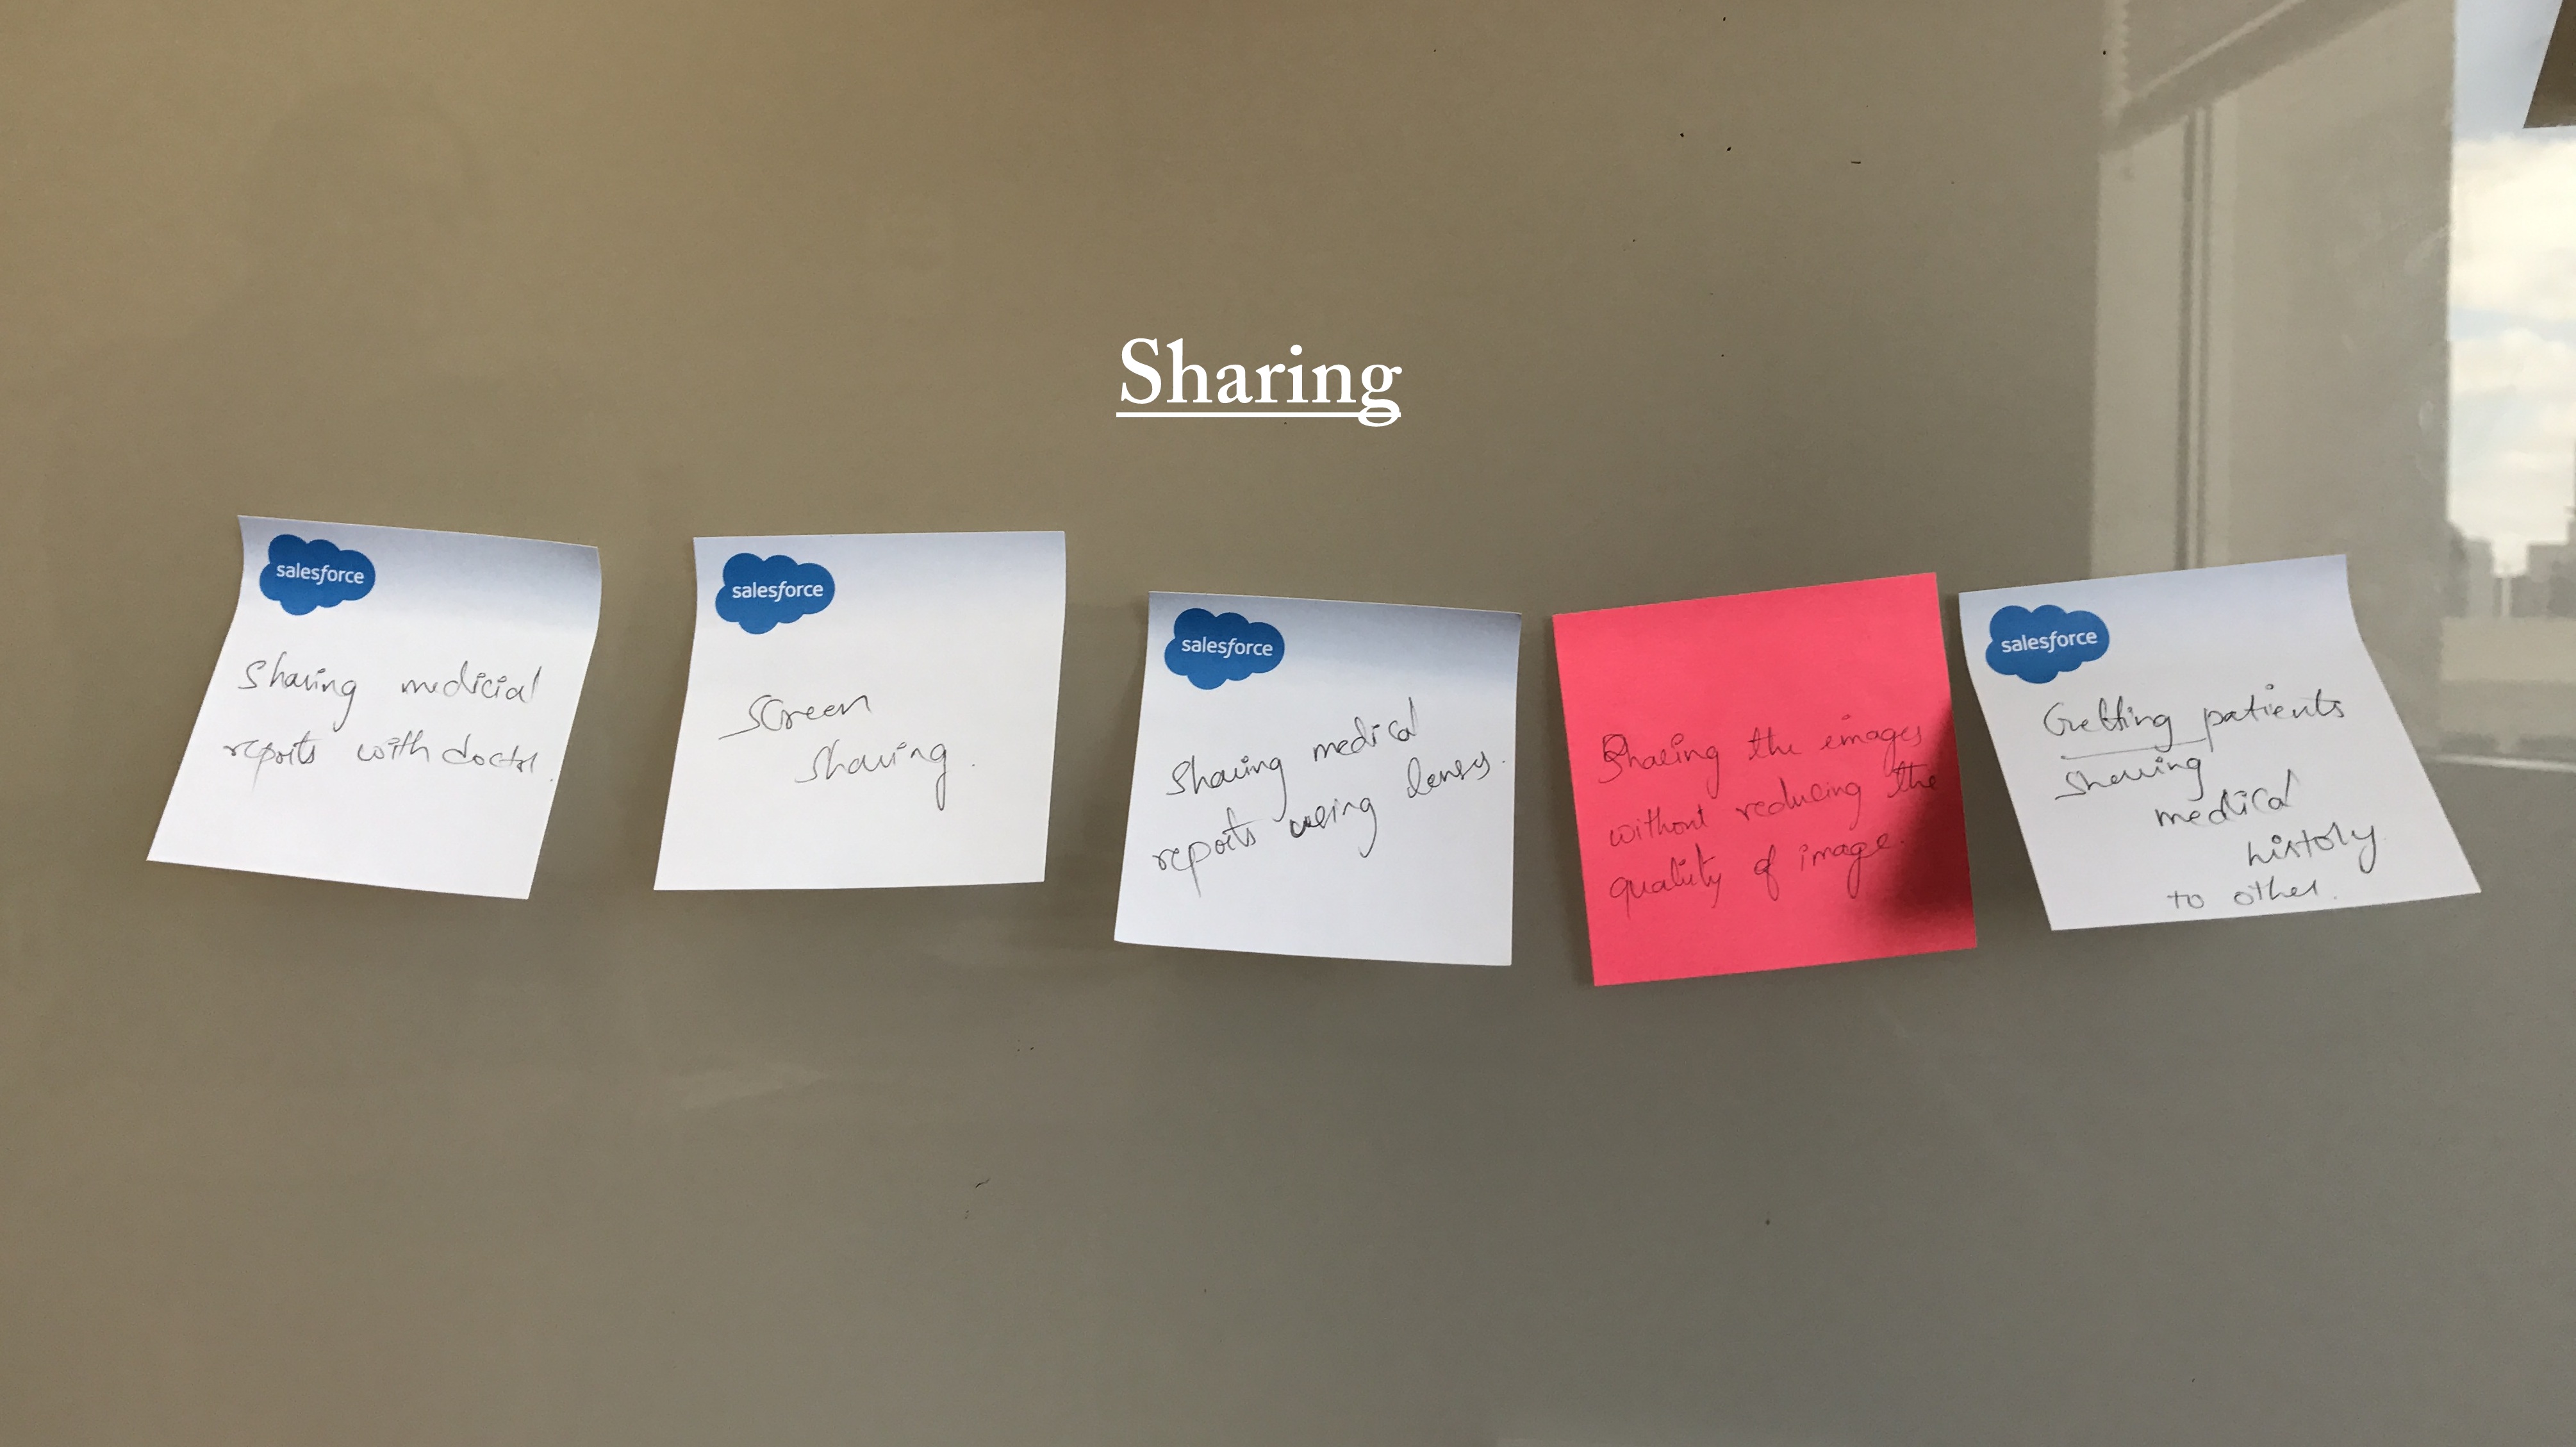 Sharing
salesforce
Sharing medicial
reports with doctor.
salesforce
Screen
Sharing.
salesforce
Sharing medical
reports using lenses.
Sharing the images
without reducing the
quality of image.
salesforce
Getting patients
Sharing
medical
history
to other.